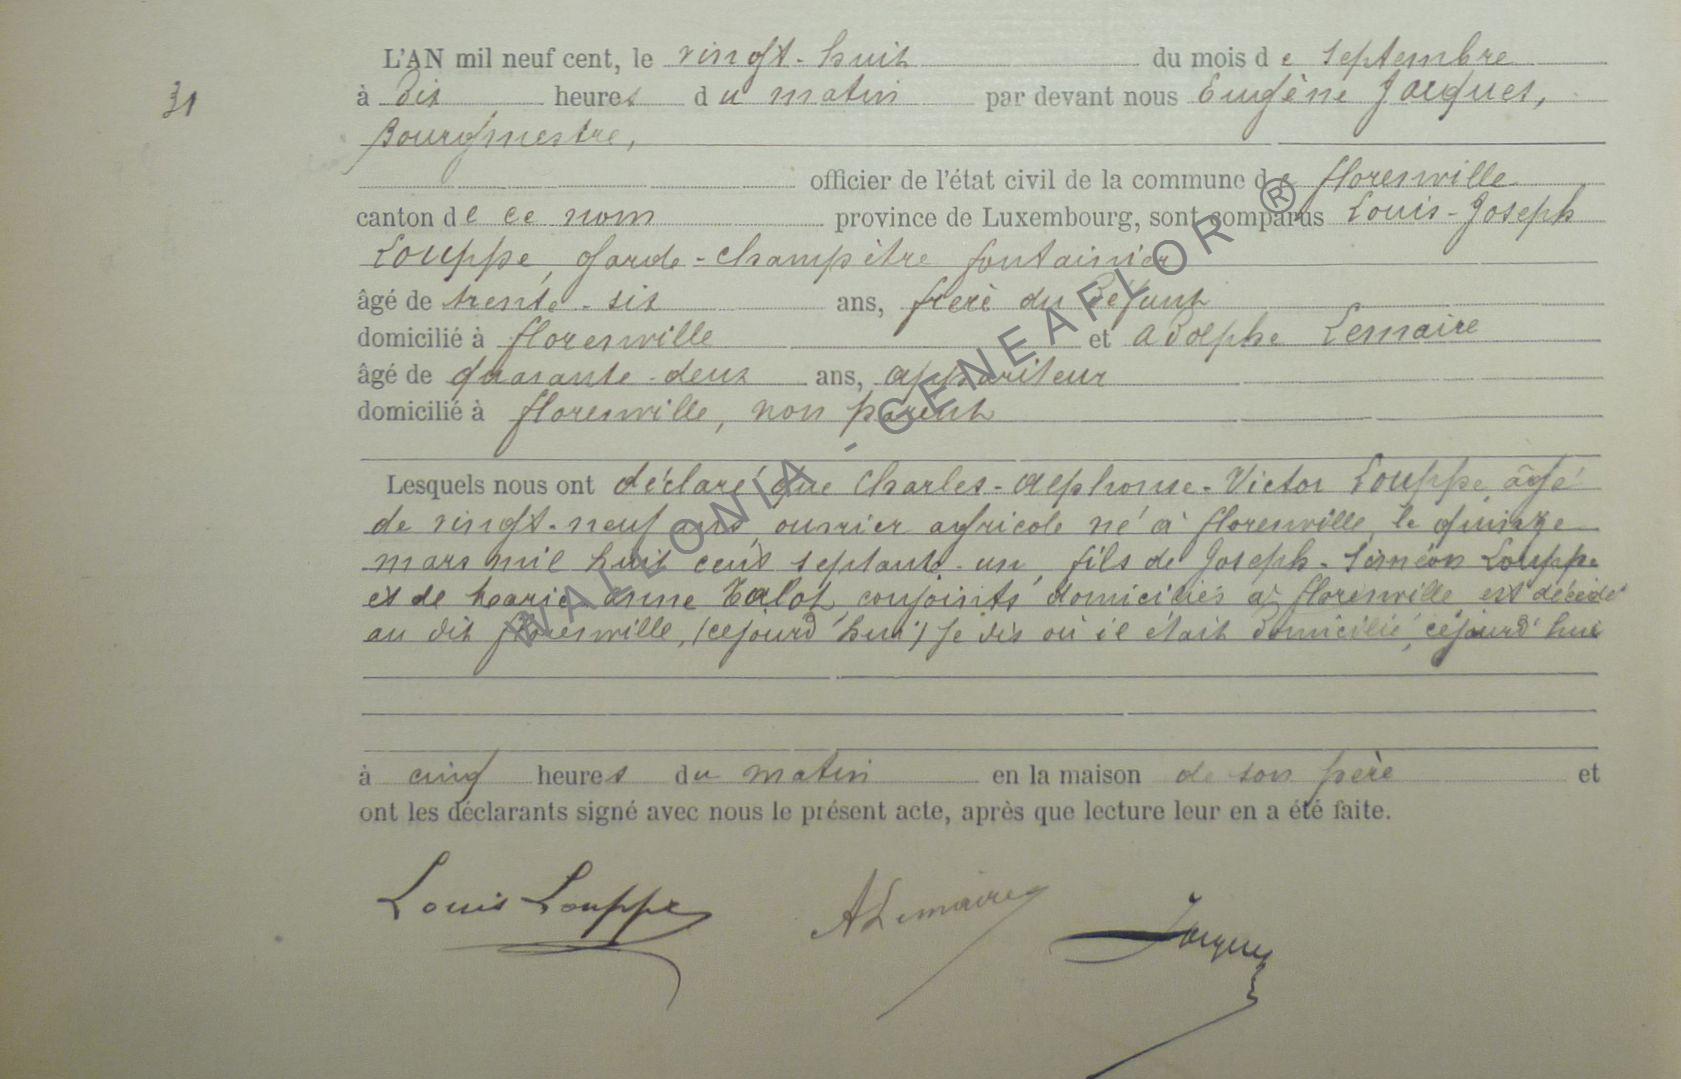 31
L'AN mil neuf cent, le vingt-huit du mois de septembre
à dix heures du matin par devant nous Eugène Jacques,
Bourgmestre,
officier de l'état civil de la commune de florenville
canton de ce nom province de Luxembourg, sont comparus Louis-Joseph
Louppe, garde-champêtre fontainier
âgé de trente-six ans, frère du défunt
domicilié à florenville et adolphe Lemaire
âgé de quarante-deux ans, appariteur
domicilié à florenville, non parent
Lesquels nous ont déclaré que Charles-Alphonse-Victor Louppe, âgé
de vingt-neuf ans, ouvrier agricole né à florenville, le quinze
mars mil huit cent septante-un, fils de Joseph-Siméon Louppe
et de marie anne Talot, conjoints domiciliés à florenville est décédé
au dit florenville, (cejourd'hui) je dis où il était domicilié, cejourd'hui
à cinq heures du matin en la maison de son père et
ont les déclarants signé avec nous le présent acte, après que lecture leur en a été faite.
Louis Louppe ALemaire Jacques
WALLONIA - GENEAFLOR ®